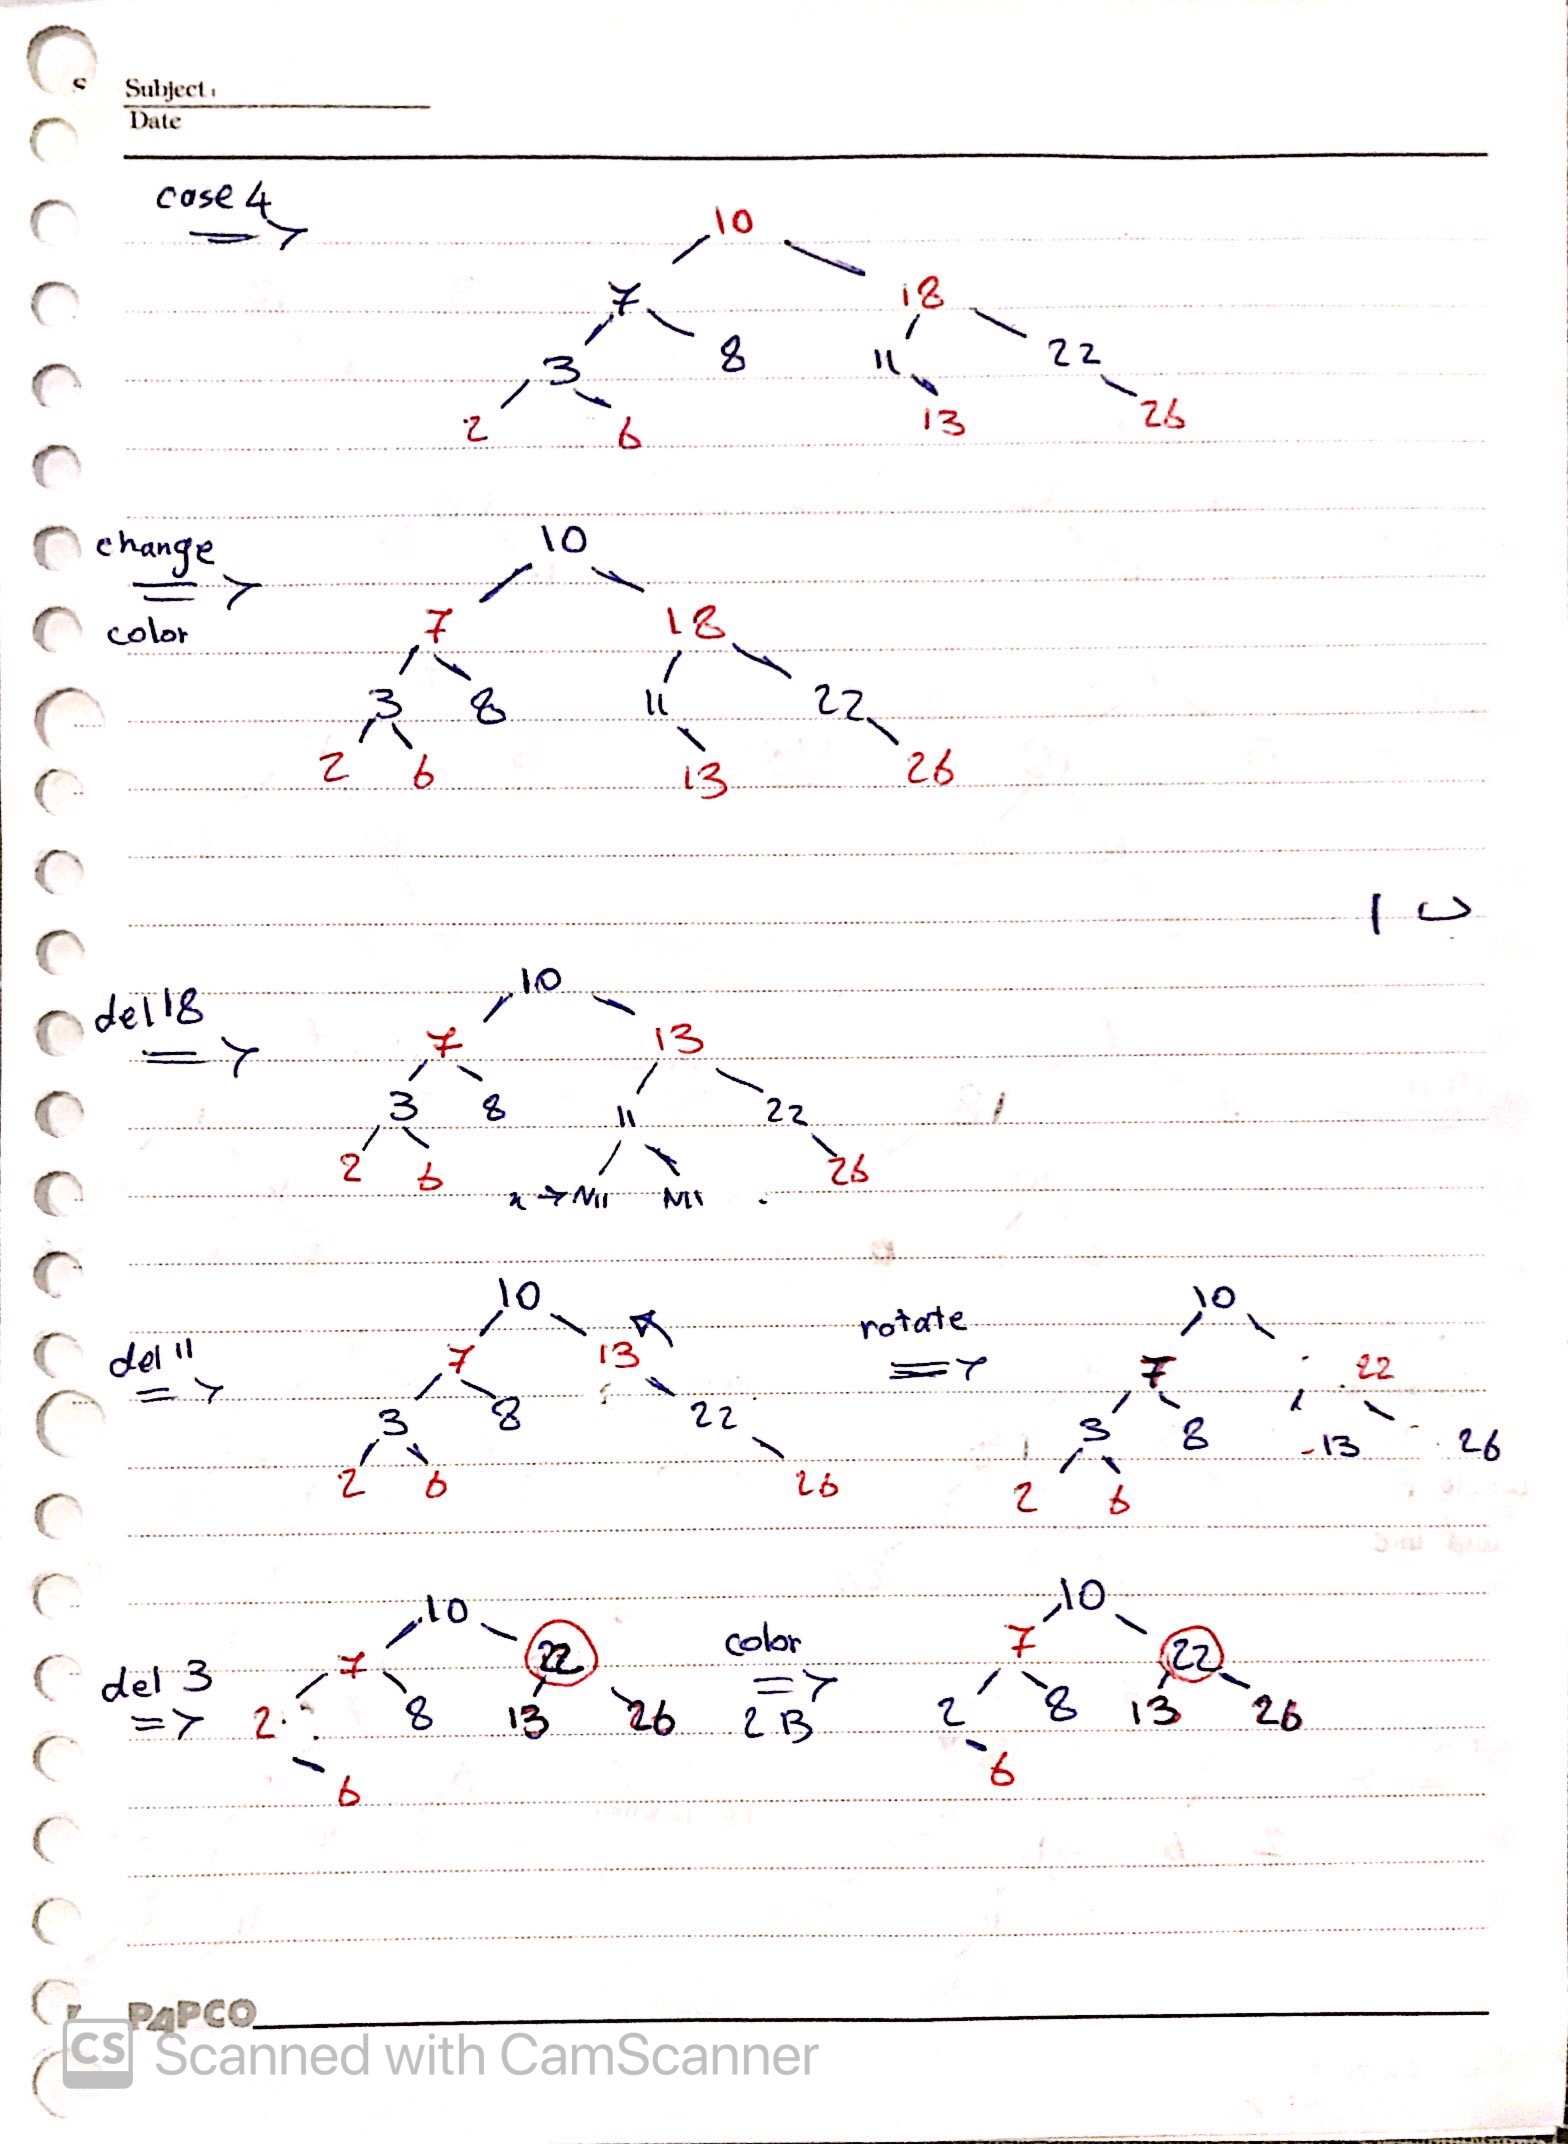 Subject:
Date
case 4
10
7 18
3 8 11 22
2 6 13 26
change
color
10
7 18
3 8 11 22
2 6 13 26
ب ا
del 18
10
7 13
3 8 11 22
2 6 x → Nil Nil 26
del 11
10
7 13
3 8 22
2 6 26
rotate
10
7 22
3 8 13 26
2 6
del 3
10
7 22
2 8 13 26
6
color
2 B
10
7 22
2 8 13 26
6
PAPCO
CS Scanned with CamScanner